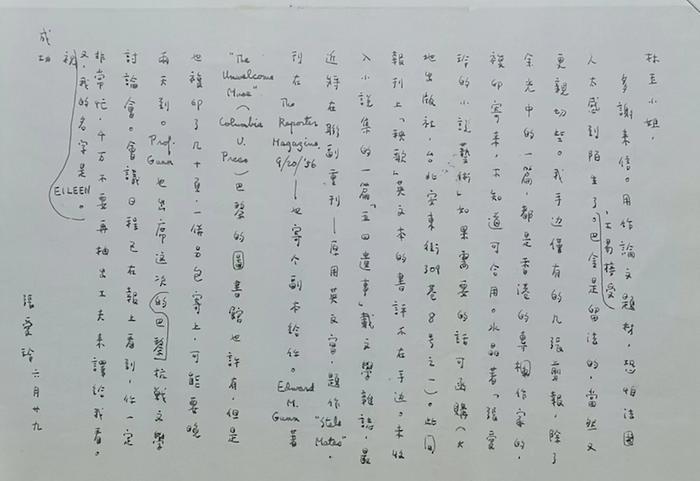 小姐，
多謝來信。用作論文題材，恐怕法國
人太感到陌生了。不易接受。巴金是留法的，當然又
更親切些。我手边僅有的几張剪報，除了
余光中的一篇，都是香港的專欄作家的，
複印寄来，不知道可合用。水晶著「張愛
玲的小說藝術」如果需要的話可函購（大
地出版社，台北寧東街309巷8号之一）。此间
報刊上「秧歌」英文本的書評不在手边。未收
入小說集的一篇「五四遺事」載文學雜誌，最
近将在聯副重刊—原用英文寫，題作"Stale Mates"，
刊在The Reporter Magazine, 9/20/'56—也寄个副本给你。Edward M. Gunn著
"The Unwelcome Muse" (Columbia U. Press) 巴黎的圖書館也許有，但是
也複印了几十頁，一併另包寄上，可能要晚
兩天到。Prof. Gunn也出席这次的巴黎抗戰文學
討論會。會議日程已在報上看到，你一定
非常忙，千万不要再抽出工夫来譯给我看。
又，我的名字是EILEEN。
祝
成功
張愛玲 六月廿九